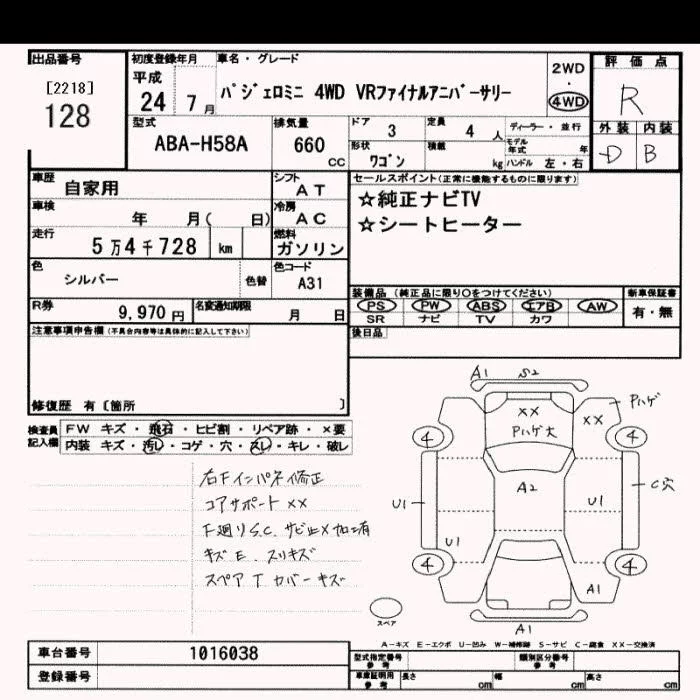 出品番号
[2218]
128
初度登録年月
平成
24 7 月
車名・グレード
パジェロミニ 4WD VRファイナルアニバーサリー
2WD
・
4WD
評価点
R
外装 内装
D B
型式
ABA-H58A
排気量
660
CC
ドア
3
定員
4 人
ディーラー・並行
形状
ワゴン
積載
kg
モデル年式
年
ハンドル 左・右
車歴
自家用
シフト
AT
車検
年 月( 日)
冷房
AC
走行
5万4千728 km
燃料
ガソリン
色
シルバー
色替
色コード
A31
R券
9,970 円
名変通知期限
月 日
セールスポイント(正常に機能するものに限ります)
☆純正ナビTV
☆シートヒーター
装備品 (純正品に限り○をつけてください)
PS PW ABS エアB AW
SR ナビ TV カワ
新車保証書
有・無
後日品
注意事項申告欄(不具合内容等は具体的に記入して下さい)
修復歴 有〔箇所 〕
検査員
記入欄
FW キズ・飛石・ヒビ割・リペア跡・×要
内装 キズ・汚レ・コゲ・穴・スレ・キレ・破レ
右Fインパネ修正
コアサポート ××
F廻りS.C. サビ止メ加工有
キズ E. スリキズ
スペアT カバーキズ
A1 S2
××
Pハゲ大
××
Pハゲ
4 4
A2
U1 U1
C穴
U1
4 4
A1
A1
スペア
A―キズ E―エクボ U―凹み W―補修跡 S―サビ C―腐食 ××―交換済
車台番号
1016038
登録番号
型式指定番号
参考
類別区分番号
参考
車庫証明用
参考
長さ
cm
幅
cm
高さ
cm